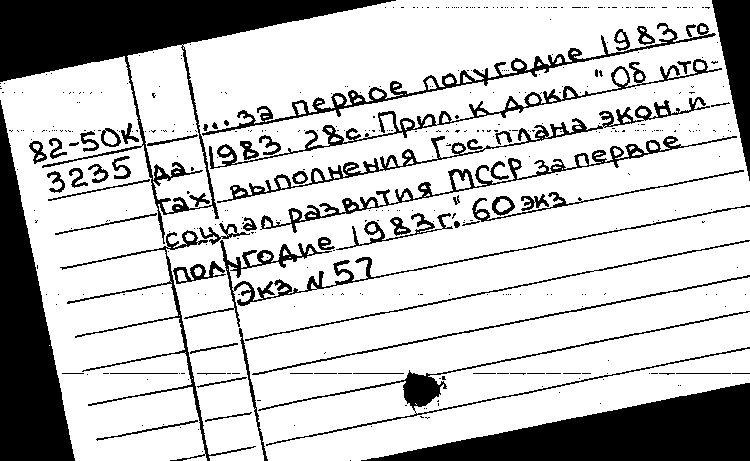 ... за первое полугодие 1983 го
82-50К да. 1983. 28с. Прил. к докл. "Об ито-
3235 тах выполнения Гос. плана экон. и
социал. развития МССР за первое
полугодие 1983 г." 60 экз.
Экз. N 57